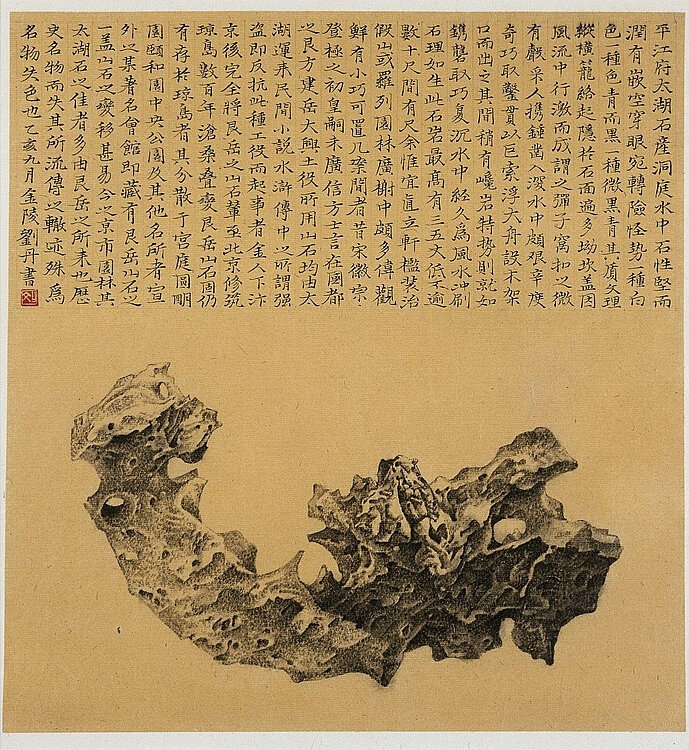 平江府太湖石產洞庭水中石性堅而
潤有嵌空穿眼宛轉險怪勢種白
色一種色青而黑一種微黑青其質文理
縱橫籠絡起隱於石面遍多坳坎蓋因
風流中行激而成謂之彈子窩扣之微
有聲采人携錘鑿入深水中頗艱辛度
奇巧取鑿貫以巨索浮大舟設木架
而出之其間稍有巉岩特勢則就如
鐫礱取巧复沉水中經久爲風水冲刷
石理如生此石岩最高有三五丈低不逾
數十尺間有尺余惟宜直立軒檻裝治
假山或羅列園林廣榭中頗多偉觀
鮮有小巧可置几案間者昔宋徽宗
登極之初皇嗣未廣信方士言在國都
之艮方建岳大興土役所用山石均由太
湖運來民間小説水滸傳中之所謂强
盗即反抗此種工役而起事者金人下汴
京後完全將艮岳之山石輦至北京修筑
琼島數百年滄桑叠變艮岳山石固仍
有存於琼島者其分散于宫庭圓明
園頤和園中央公園及其他名所者宣
外之某著名會館即藏有艮岳山石之
一蓋山石之變移甚易今之京市園林其
太湖石之佳者多由艮岳之所來也歷
史名物而失其所流傳之轍迹殊爲
名物失色也乙亥九月金陵劉丹書